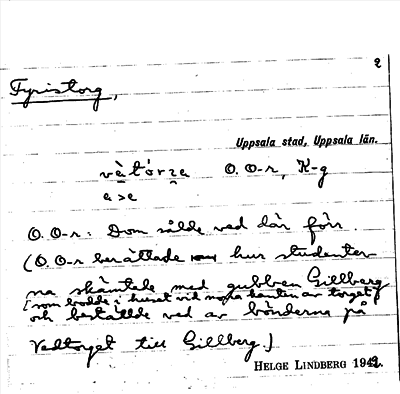 2
Fyristorg,
Uppsala stad, Uppsala län.
O. O-r, K-g
a > e
O. O-r: Dom sålde ved där förr.
(O. O-r berättade hur studenter
na skämtade med gubben Gillberg
[som bodde i huset vid norra kanten av torget]
och beställde ved av bönderna på
Vedtorget till Gillberg.)
HELGE LINDBERG 1942.